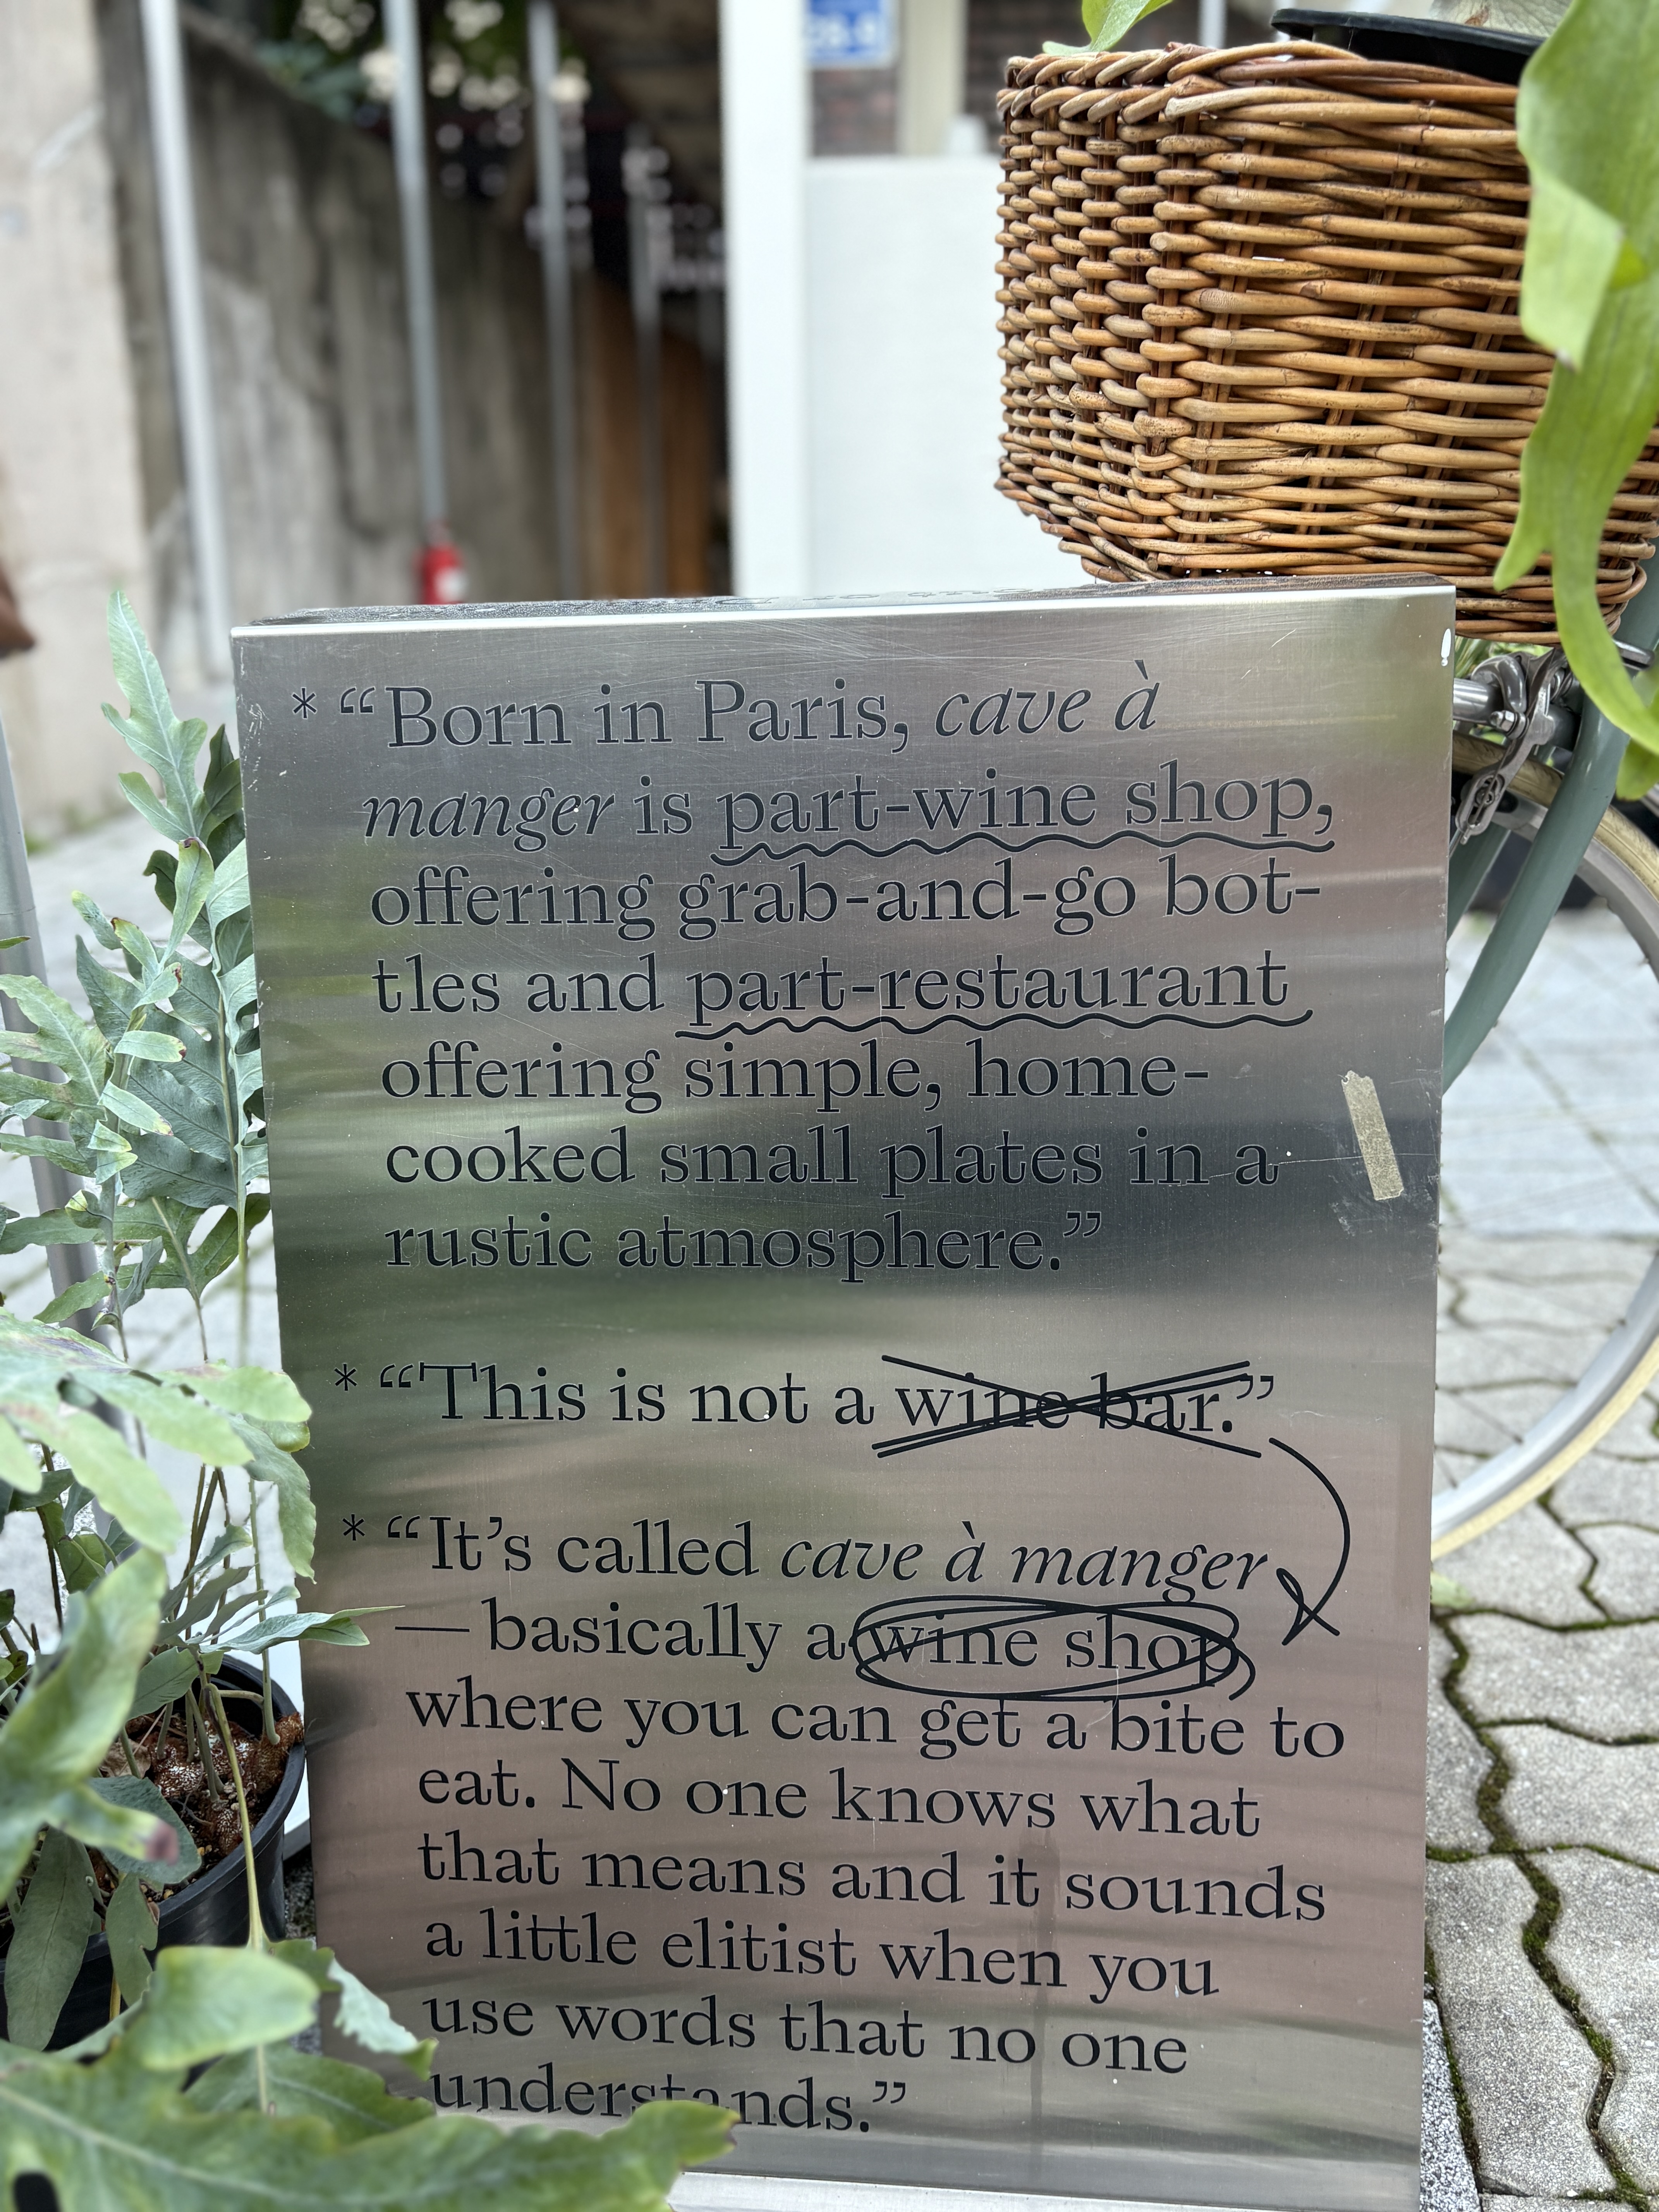 * “Born in Paris, cave à
manger is part-wine shop,
offering grab-and-go bot-
tles and part-restaurant
offering simple, home-
cooked small plates in a
rustic atmosphere.”
* “This is not a wine bar.”
* “It’s called cave à manger
— basically a wine shop
where you can get a bite to
eat. No one knows what
that means and it sounds
a little elitist when you
use words that no one
understands.”